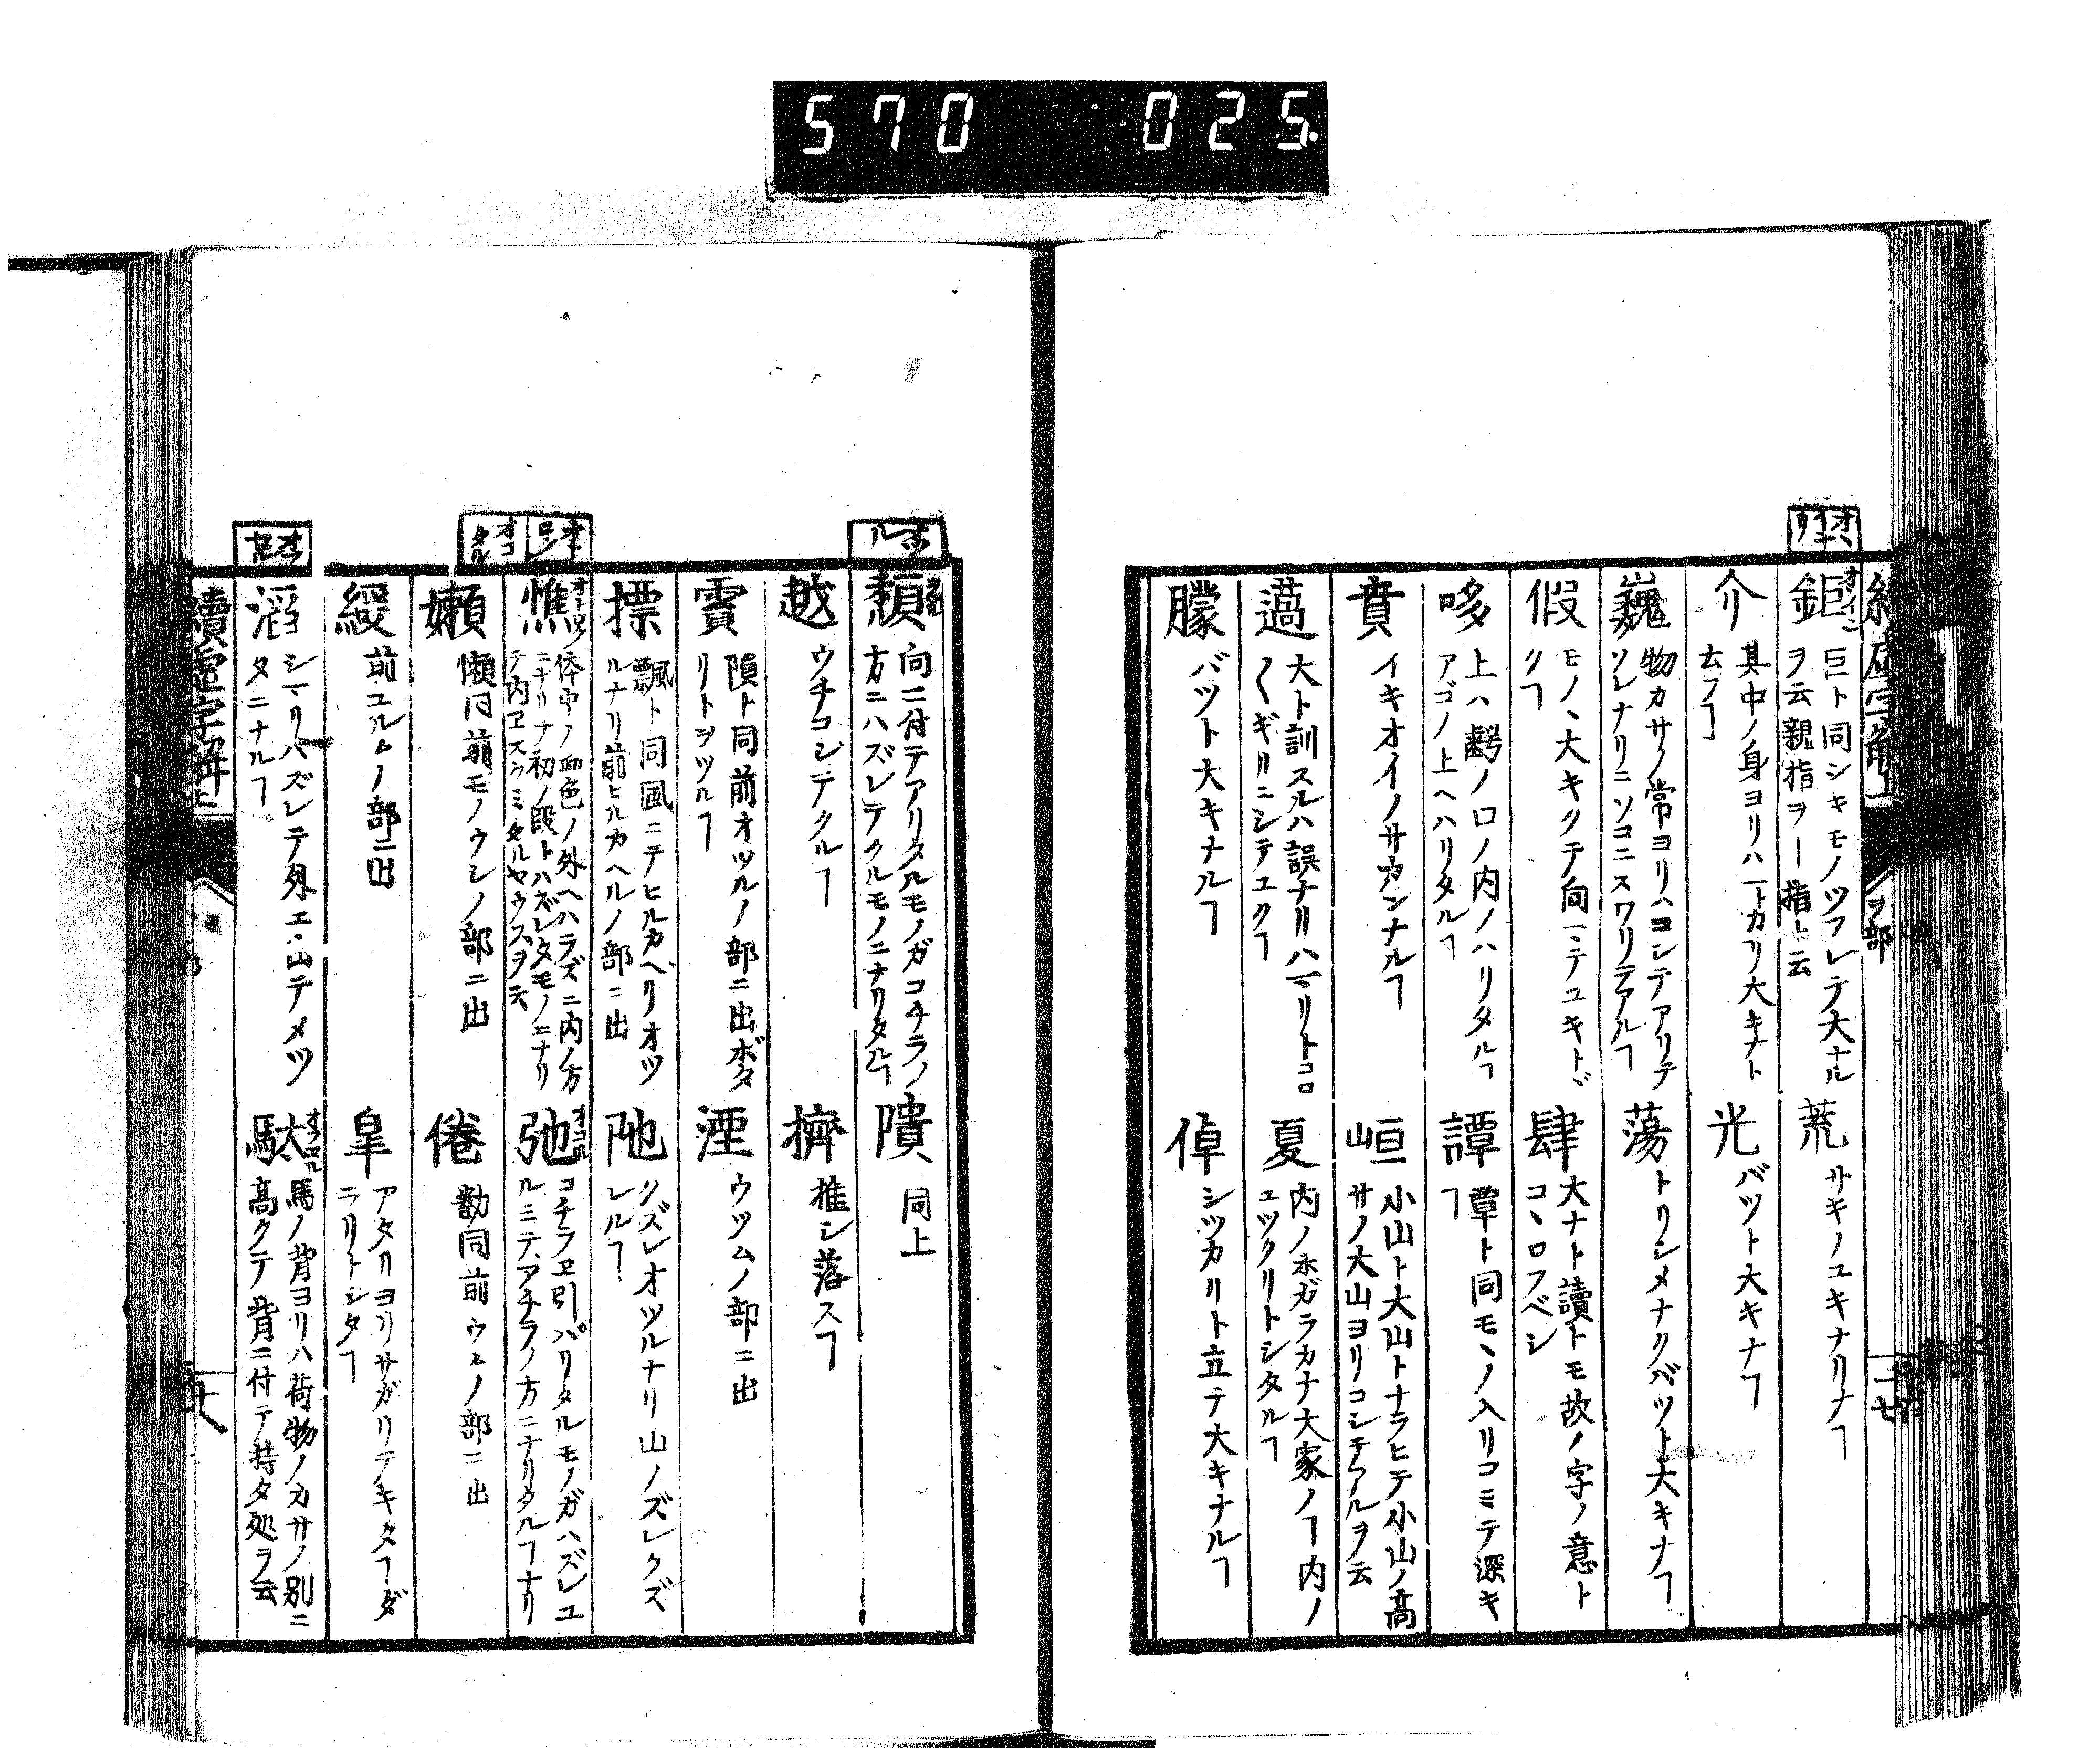 570 025
オヽイナリ
鉅 オヽイニ
巨ト同シキモノツフレテ大ナル
ヲ云親指ヲ一指ト云
荒 サキノユキナリナヿ
介 其中ノ身ヨリハートカワ大キナト
云フヿ
光 バツト大キナヿ
巍 物カサノ常ヨリハコシテアリテ
ソレナリニソコニスワリテアルヿ
蕩 トリシメナクバツト大キナヿ
假 モノヽ大キクテ向ニテユキトヾ
クヿ
肆 大ナト讀トモ故ノ字ノ意ト
コヽロフベシ
哆 上ハ齶ノ口ノ内ノハリタルヿ
アゴノ上ヘハリタルヿ
譚 覃ト同モノヽ入リコミテ深キ
ヿ
賁 イキオイノサカンナルヿ
峘 小山ト大山トナラヒテ小山ノ高
サノ大山ヨリコシテアルヲ云
薖 大ト訓スルハ誤ナリハマリトコロ
〱ギリニシテユクヿ
夏 内ノホガラカナ大家ノヿ内ノ
ユツクリトシタルヿ
朦 バツト大キナルヿ
倬 シツカリト立テ大キナルヿ
ヲ部
十七
オツル
頽 向ニ付テアリタルモノガコチラノ
方ニハズレテクルモノニナリタルヿ
隤 同上
越 ウチコシテクルヿ
擠 推シ落スヿ
霣 隕ト同前オツルノ部ニ出ボタ
リトヲツルヿ
湮 ウツムノ部ニ出
摽 飄ト同風ニテヒルカヘリオツ
ルナリ前ヒルカヘルノ部ニ出
阤 クズレオツルナリ山ノズレクズ
レルヿ
オトロフ
オコタル
憔 オトロフ
体中ノ血色ノ外ヘハラズニ内ノ方
ニナリテ初ノ段トハズレタモノニナリ
テ内ヱスクミタルヤウスヲ云
弛 オコタル
コチラヱ引パリタルモノガハズレユ
ルミテアチラノ方ニナリタルヿナリ
嬾 懶同前モノウシノ部ニ出
倦 勌同前ウムノ部ニ出
緩 前ユルムノ部ニ出
皐 アタリヨリサガリテキタヿダ
ラリトシタヿ
滔 シマリハズレテ外エ山テメツ
タニナルヿ
駄 馬ノ背ヨリハ荷物ノカサノ別ニ
高クテ背ニ付テ持タ処ヲ云
續虚字解上
十八